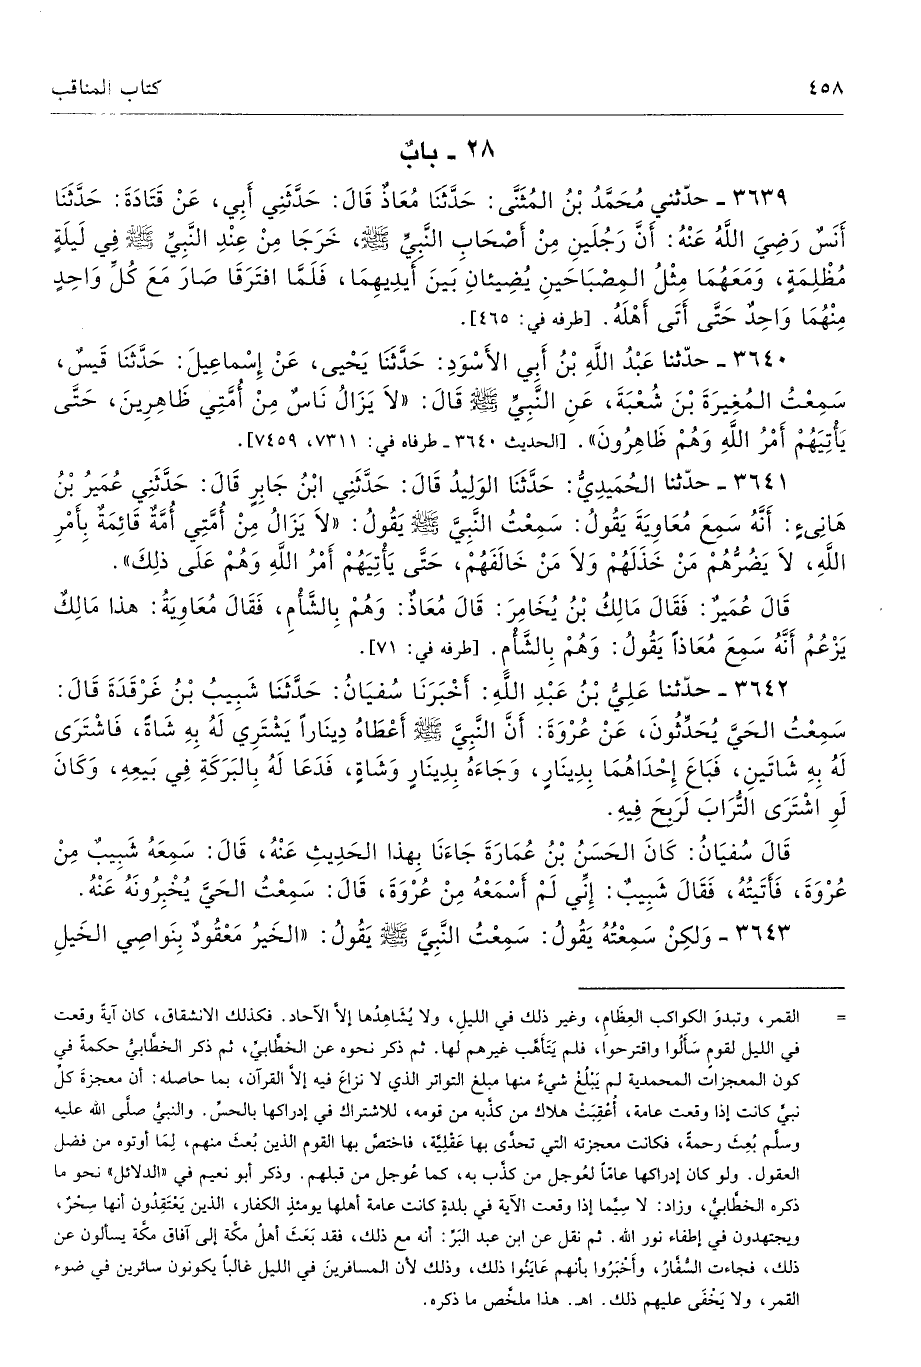 ٤٥٨
كتاب المناقب
٢٨ ـ بابٌ
٣٦٣٩ ـ حدّثني مُحَمَّدُ بْنُ المُثَنَّى: حَدَّثَنَا مُعَاذٌ قَالَ: حَدَّثَنِي أَبِي، عَنْ قَتَادَةَ: حَدَّثَنَا
أَنَسٌ رَضِيَ اللَّهُ عَنْهُ: أَنَّ رَجُلَينِ مِنْ أَصْحَابِ النَّبِيِّ ﷺ، خَرَجَا مِنْ عِنْدِ النَّبِيِّ ﷺ فِي لَيلَةٍ
مُظْلِمَةٍ، وَمَعَهُمَا مِثْلُ المِصْبَاحَينِ يُضِيئانِ بَينَ أَيدِيهِمَا، فَلَمَّا افتَرَقَا صَارَ مَعَ كُلِّ وَاحِدٍ
مِنْهُمَا وَاحِدٌ حَتَّى أَتَى أَهْلَهُ. [طرفه في: ٤٦٥].
٣٦٤٠ ـ حدّثنا عَبْدُ اللَّهِ بْنُ أَبِي الأَسْوَدِ: حَدَّثَنَا يَحْيى، عَنْ إِسْماعِيلَ: حَدَّثَنَا قَيسٌ،
سَمِعْتُ المُغِيرَةَ بْنَ شُعْبَةَ، عَنِ النَّبِيِّ ﷺ قَالَ: «لاَ يَزَالُ نَاسٌ مِنْ أُمَّتِي ظَاهِرِينَ، حَتَّى
يَأْتِيَهُمْ أَمْرُ اللَّهِ وَهُمْ ظَاهِرُونَ». [الحديث ٣٦٤٠ ـ طرفاه في: ٧٣١١، ٧٤٥٩].
٣٦٤١ ـ حدّثنا الحُمَيدِيُّ: حَدَّثَنَا الوَلِيدُ قَالَ: حَدَّثَنِي ابْنُ جَابِرٍ قَالَ: حَدَّثَنِي عُمَيرُ بْنُ
هَانِىءٍ: أَنَّهُ سَمِعَ مُعَاوِيَةَ يَقُولُ: سَمِعْتُ النَّبِيَّ ﷺ يَقُولُ: «لاَ يَزَالُ مِنْ أُمَّتِي أُمَّةٌ قَائِمَةٌ بِأَمْرِ
اللَّهِ، لاَ يَضُرُّهُمْ مَنْ خَذَلَهُمْ وَلاَ مَنْ خَالَفَهُمْ، حَتَّى يَأْتِيَهُمْ أَمْرُ اللَّهِ وَهُمْ عَلَى ذلِكَ».
قَالَ عُمَيرٌ: فَقَالَ مَالِكُ بْنُ يُخَامِرَ: قَالَ مُعَاذٌ: وَهُمْ بِالشَّأْمِ، فَقَالَ مُعَاوِيَةُ: هذا مَالِكٌ
يَزْعُمُ أَنَّهُ سَمِعَ مُعَاذاً يَقُولُ: وَهُمْ بِالشَّأْمِ. [طرفه في: ٧١].
٣٦٤٢ ـ حدّثنا عَلِيُّ بْنُ عَبْدِ اللَّهِ: أَخْبَرَنَا سُفيَانُ: حَدَّثَنَا شَبِيبُ بْنُ غَرْقَدَةَ قَالَ:
سَمِعْتُ الحَيَّ يُحَدِّثُونَ، عَنْ عُرْوَةَ: أَنَّ النَّبِيَّ ﷺ أَعْطَاهُ دِينَاراً يَشْتَرِي لَهُ بِهِ شَاةً، فَاشْتَرَى
لَهُ بِهِ شَاتَينِ، فَبَاعَ إِحْدَاهُمَا بِدِينَارٍ، وَجَاءَهُ بِدِينَارٍ وَشَاةٍ، فَدَعَا لَهُ بِالبَرَكَةِ فِي بَيعِهِ، وَكَانَ
لَوِ اشْتَرَى التُّرَابَ لَرَبِحَ فِيهِ.
قَالَ سُفيَانُ: كَانَ الحَسَنُ بْنُ عُمَارَةَ جَاءَنَا بِهذا الحَدِيثِ عَنْهُ، قَالَ: سَمِعَهُ شَبِيبٌ مِنْ
عُرْوَةَ، فَأَتَيتُهُ، فَقَالَ شَبِيبٌ: إِنِّي لَمْ أَسْمَعْهُ مِنْ عُرْوَةَ، قَالَ: سَمِعْتُ الحَيَّ يُخْبِرُونَهُ عَنْهُ.
٣٦٤٣ ـ وَلكِنْ سَمِعْتُهُ يَقُولُ: سَمِعْتُ النَّبِيَّ ﷺ يَقُولُ: «الخَيرُ مَعْقُودٌ بِنَواصِي الخَيلِ
= القمر، وتبدوَ الكواكب العِظَام، وغير ذلك في الليلِ، ولا يُشَاهِدُها إلاَّ الآحاد. فكذلك الانشقاق، كان آيةً وقعت
في الليل لقومٍ سَأَلُوا واقترحوا، فلم يَتَأَهَّب غيرهم لها. ثم ذكر نحوه عن الخطَّابيِّ، ثم ذكر الخطَّابيُّ حكمة في
كون المعجزات المحمدية لم يَبْلُغْ شيءٌ منها مبلغ التواتر الذي لا نزاعَ فيه إلاَّ القرآن، بما حاصله: أن معجزةَ كلِّ
نبيٍّ كانت إذا وقعت عامة، أُعْقِبَتْ هلاك من كذَّبه من قومه، للاشتراك في إدراكها بالحسِّ. والنبيُّ صلَّى الله عليه
وسلَّم بُعِثَ رحمةً، فكانت معجزته التي تحدَّى بها عَقْلِيَّة، فاختصَّ بها القوم الذين بُعثَ منهم، لِمَا أوتوه من فضل
العقول. ولو كان إدراكها عامّاً لعُوجل من كذَّب به، كما عُوجل من قبلهم. وذكر أبو نعيم في «الدلائل» نحو ما
ذكره الخطَّابيُّ، وزاد: لا سِيَّما إذا وقعت الآية في بلدةٍ كانت عامة أهلها يومئذٍ الكفار، الذين يَعْتَقِدُون أنها سِحْرٌ،
ويجتهدون في إطفاء نور الله. ثم نقل عن ابن عبد البَرِّ: أنه مع ذلك، فقد بَعَثَ أهلُ مكَّة إلى آفاق مكَّة يسألون عن
ذلك، فجاءت السُّفَّارُ، وأَخْبَرُوا بأنهم عَايَنُوا ذلك، وذلك لأن المسافرينَ في الليل غالباً يكونون سائرين في ضوء
القمر، ولا يَخْفَى عليهم ذلك. اهـ. هذا ملخَّص ما ذكره.